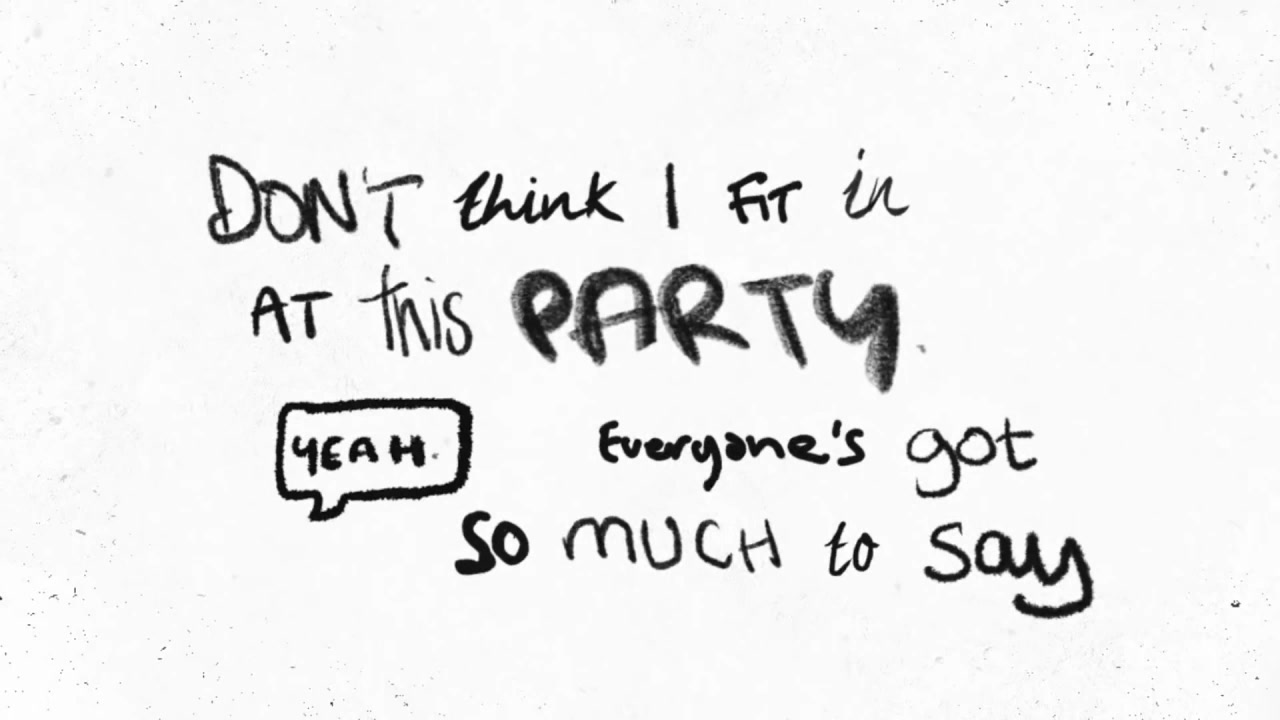 DON'T think I FiT in
AT this PARTY.
YEAH.
Everyone's got
so mUCH to say